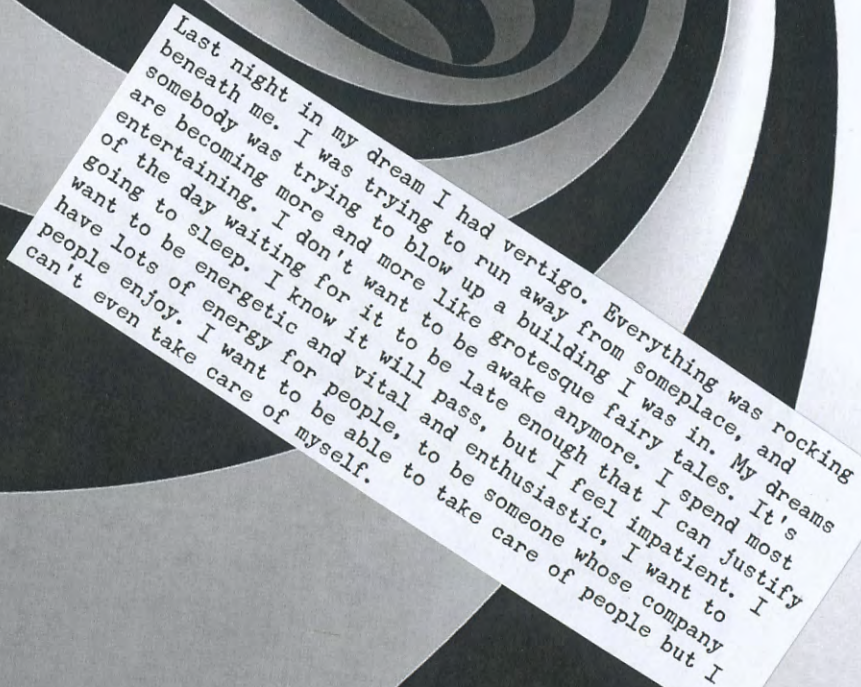 Last night in my dream I had vertigo. Everything was rocking
beneath me. I was trying to run away from someplace, and
somebody was trying to blow up a building I was in. My dreams
are becoming more and more like grotesque fairy tales. It's
entertaining. I don't want to be awake anymore. I spend most
of the day waiting for it to be late enough that I can justify
going to sleep. I know it will pass, but I feel impatient. I
want to be energetic and vital and enthusiastic, I want to
have lots of energy for people, to be someone whose company
people enjoy. I want to be able to take care of people but I
can't even take care of myself.